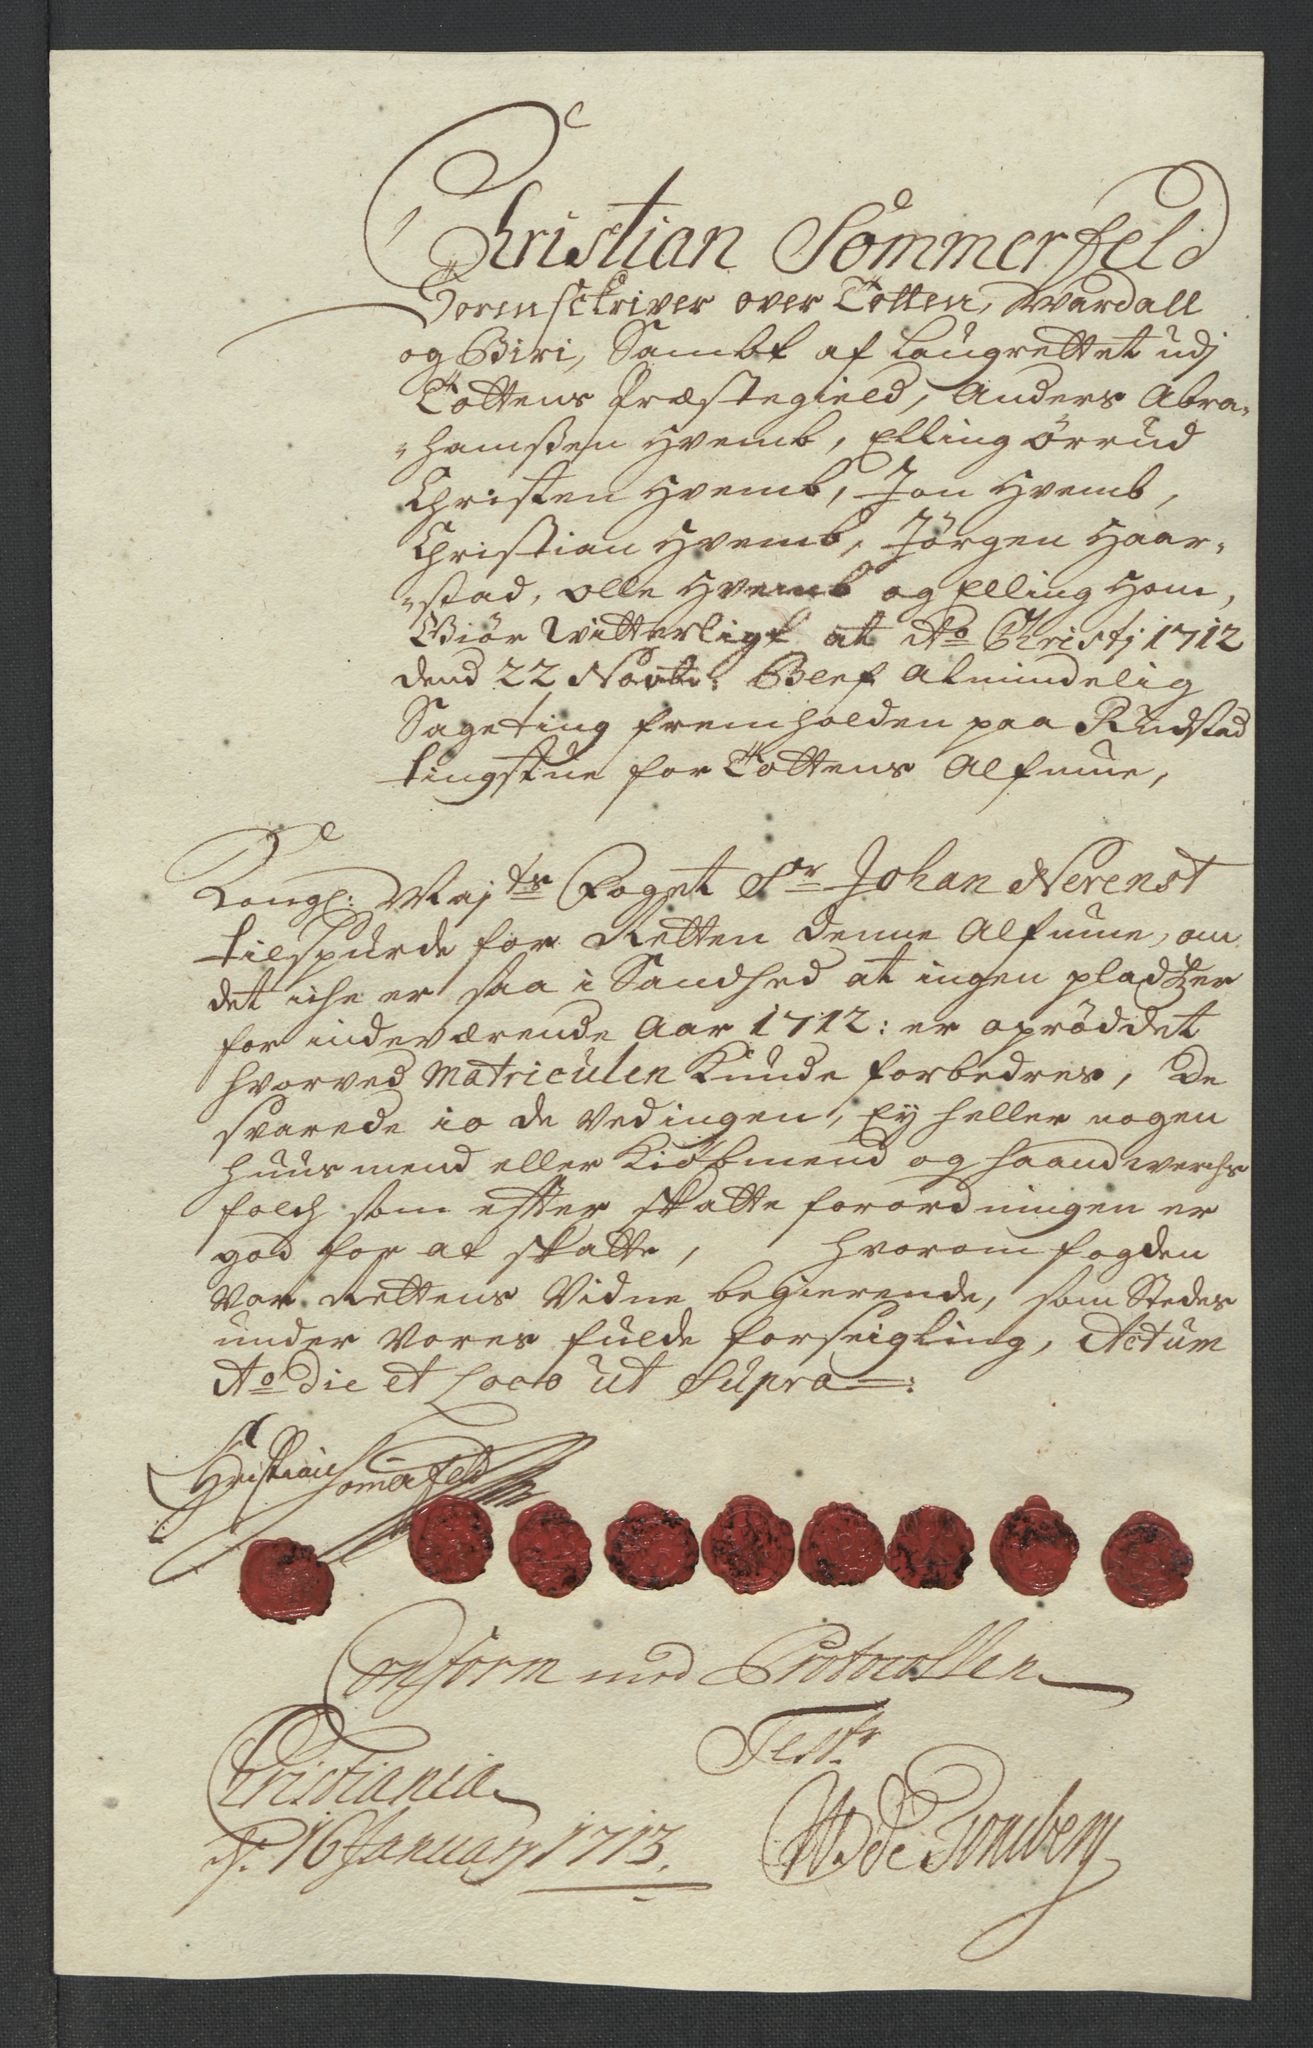 Christian Sommerfeld
Sorenschriver over Totten, Wardall
og Biri, Sambt af Laugrettet udj
Tottens Præstegield, Anders Abra-
-hamßen Hvemb, Elling Ørrud
Christen Hvemb, Jon Hvemb,
Christian Hvemb, Jörgen Haar-
-stad, Olle Hvemb og Elling Hom,
Giör Witterligt at Ao Christj 1712
dend 22 Novbr: Blef Almindelig
Sageting fremholden paa Rudstad
tingstue for Tottens Almue,
Kongl: Mayts Foget Sr Johan Nerenst
tilspurde for Retten denne Almue, om
det iche er saa i Sandhed at ingen pladtzer
for indeværende Aar 1712: er opröddet
hvorved Matriculen Kunde forbedres, De
svarede io de Vedingen, Ey heller nogen
huusmend eller Kiöbmend og haandwerchs
folch som efter skatte forordningen er
god for at skatte, hvorom fogden
var Rettens Vidne begierende, som Stedes
under Vores fulde forseigling, Actum
Ao die et Loco ut Supra
Christian Somerfeld
Conform med Protocollen
Test
Christiania
d. 16 January 1713.